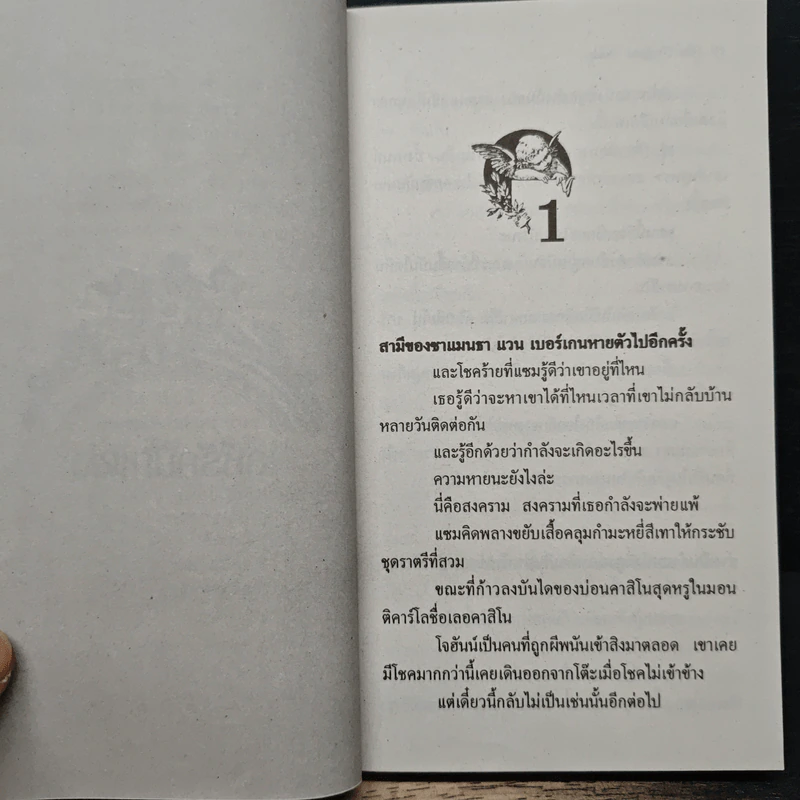 1
สามีของซาแมนธา แวน เบอร์เกนหายตัวไปอีกครั้ง
และโชคร้ายที่แซมรู้ดีว่าเขาอยู่ที่ไหน
เธอรู้ดีว่าจะหาเขาได้ที่ไหนเวลาที่เขาไม่กลับบ้าน
หลายวันติดต่อกัน
และรู้อีกด้วยว่ากำลังจะเกิดอะไรขึ้น
ความหายนะยังไงล่ะ
นี่คือสงคราม สงครามที่เธอกำลังจะพ่ายแพ้
แซมคิดพลางขยับเสื้อคลุมกำมะหยี่สีเทาให้กระชับ
ชุดราตรีที่สวม
ขณะที่ก้าวลงบันไดของบ่อนคาสิโนสุดหรูในมอน
ติคาร์โลชื่อเลอคาสิโน
โจฮันน์เป็นคนที่ถูกผีพนันเข้าสิงมาตลอด เขาเคย
มีโชคมากกว่านี้เคยเดินออกจากโต๊ะเมื่อโชคไม่เข้าข้าง
แต่เดี๋ยวนี้กลับไม่เป็นเช่นนั้นอีกต่อไป